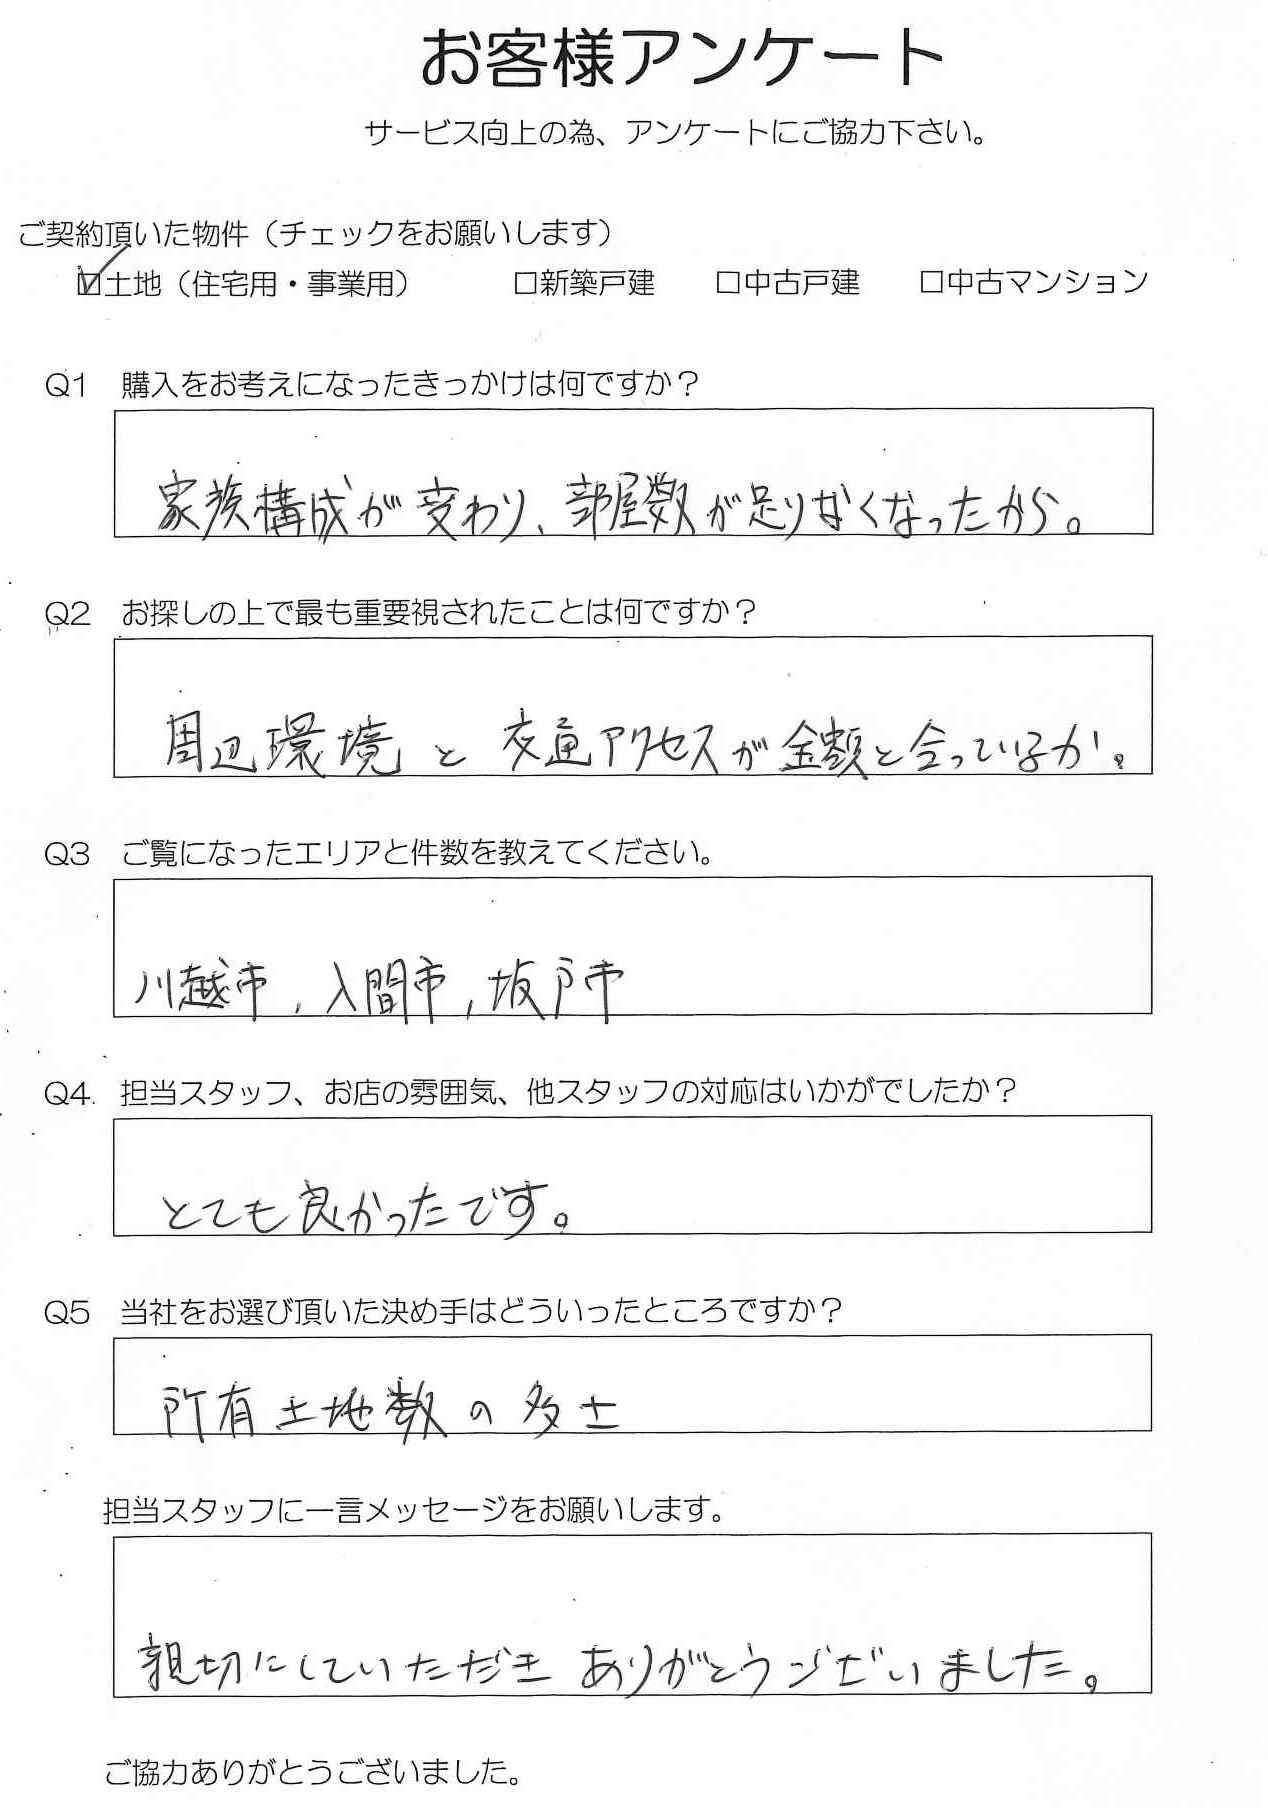 お客様アンケート
サービス向上の為、アンケートにご協力下さい。
ご契約頂いた物件（チェックをお願いします）
☑土地（住宅用・事業用） □新築戸建 □中古戸建 □中古マンション
Q1 購入をお考えになったきっかけは何ですか？
家族構成が変わり、部屋数が足りなくなったから。
Q2 お探しの上で最も重要視されたことは何ですか？
周辺環境と交通アクセスが金額と合っているか。
Q3 ご覧になったエリアと件数を教えてください。
川越市，入間市，坂戸市
Q4. 担当スタッフ、お店の雰囲気、他スタッフの対応はいかがでしたか？
とても良かったです。
Q5 当社をお選び頂いた決め手はどういったところですか？
所有土地数の多さ
担当スタッフに一言メッセージをお願いします。
親切にしていただき ありがとうございました。
ご協力ありがとうございました。